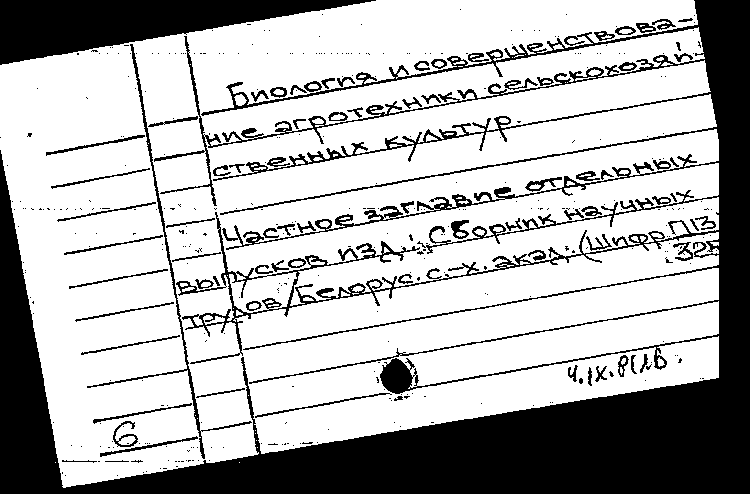 Биология и совершенствова-
ние агротехники сельскохозяй-
ственных культур.
Частное заглавие отдельных
выпусков изд.: Сборник научных
трудов/Белорус. с.-х. акад. (Шифр П13
325
6